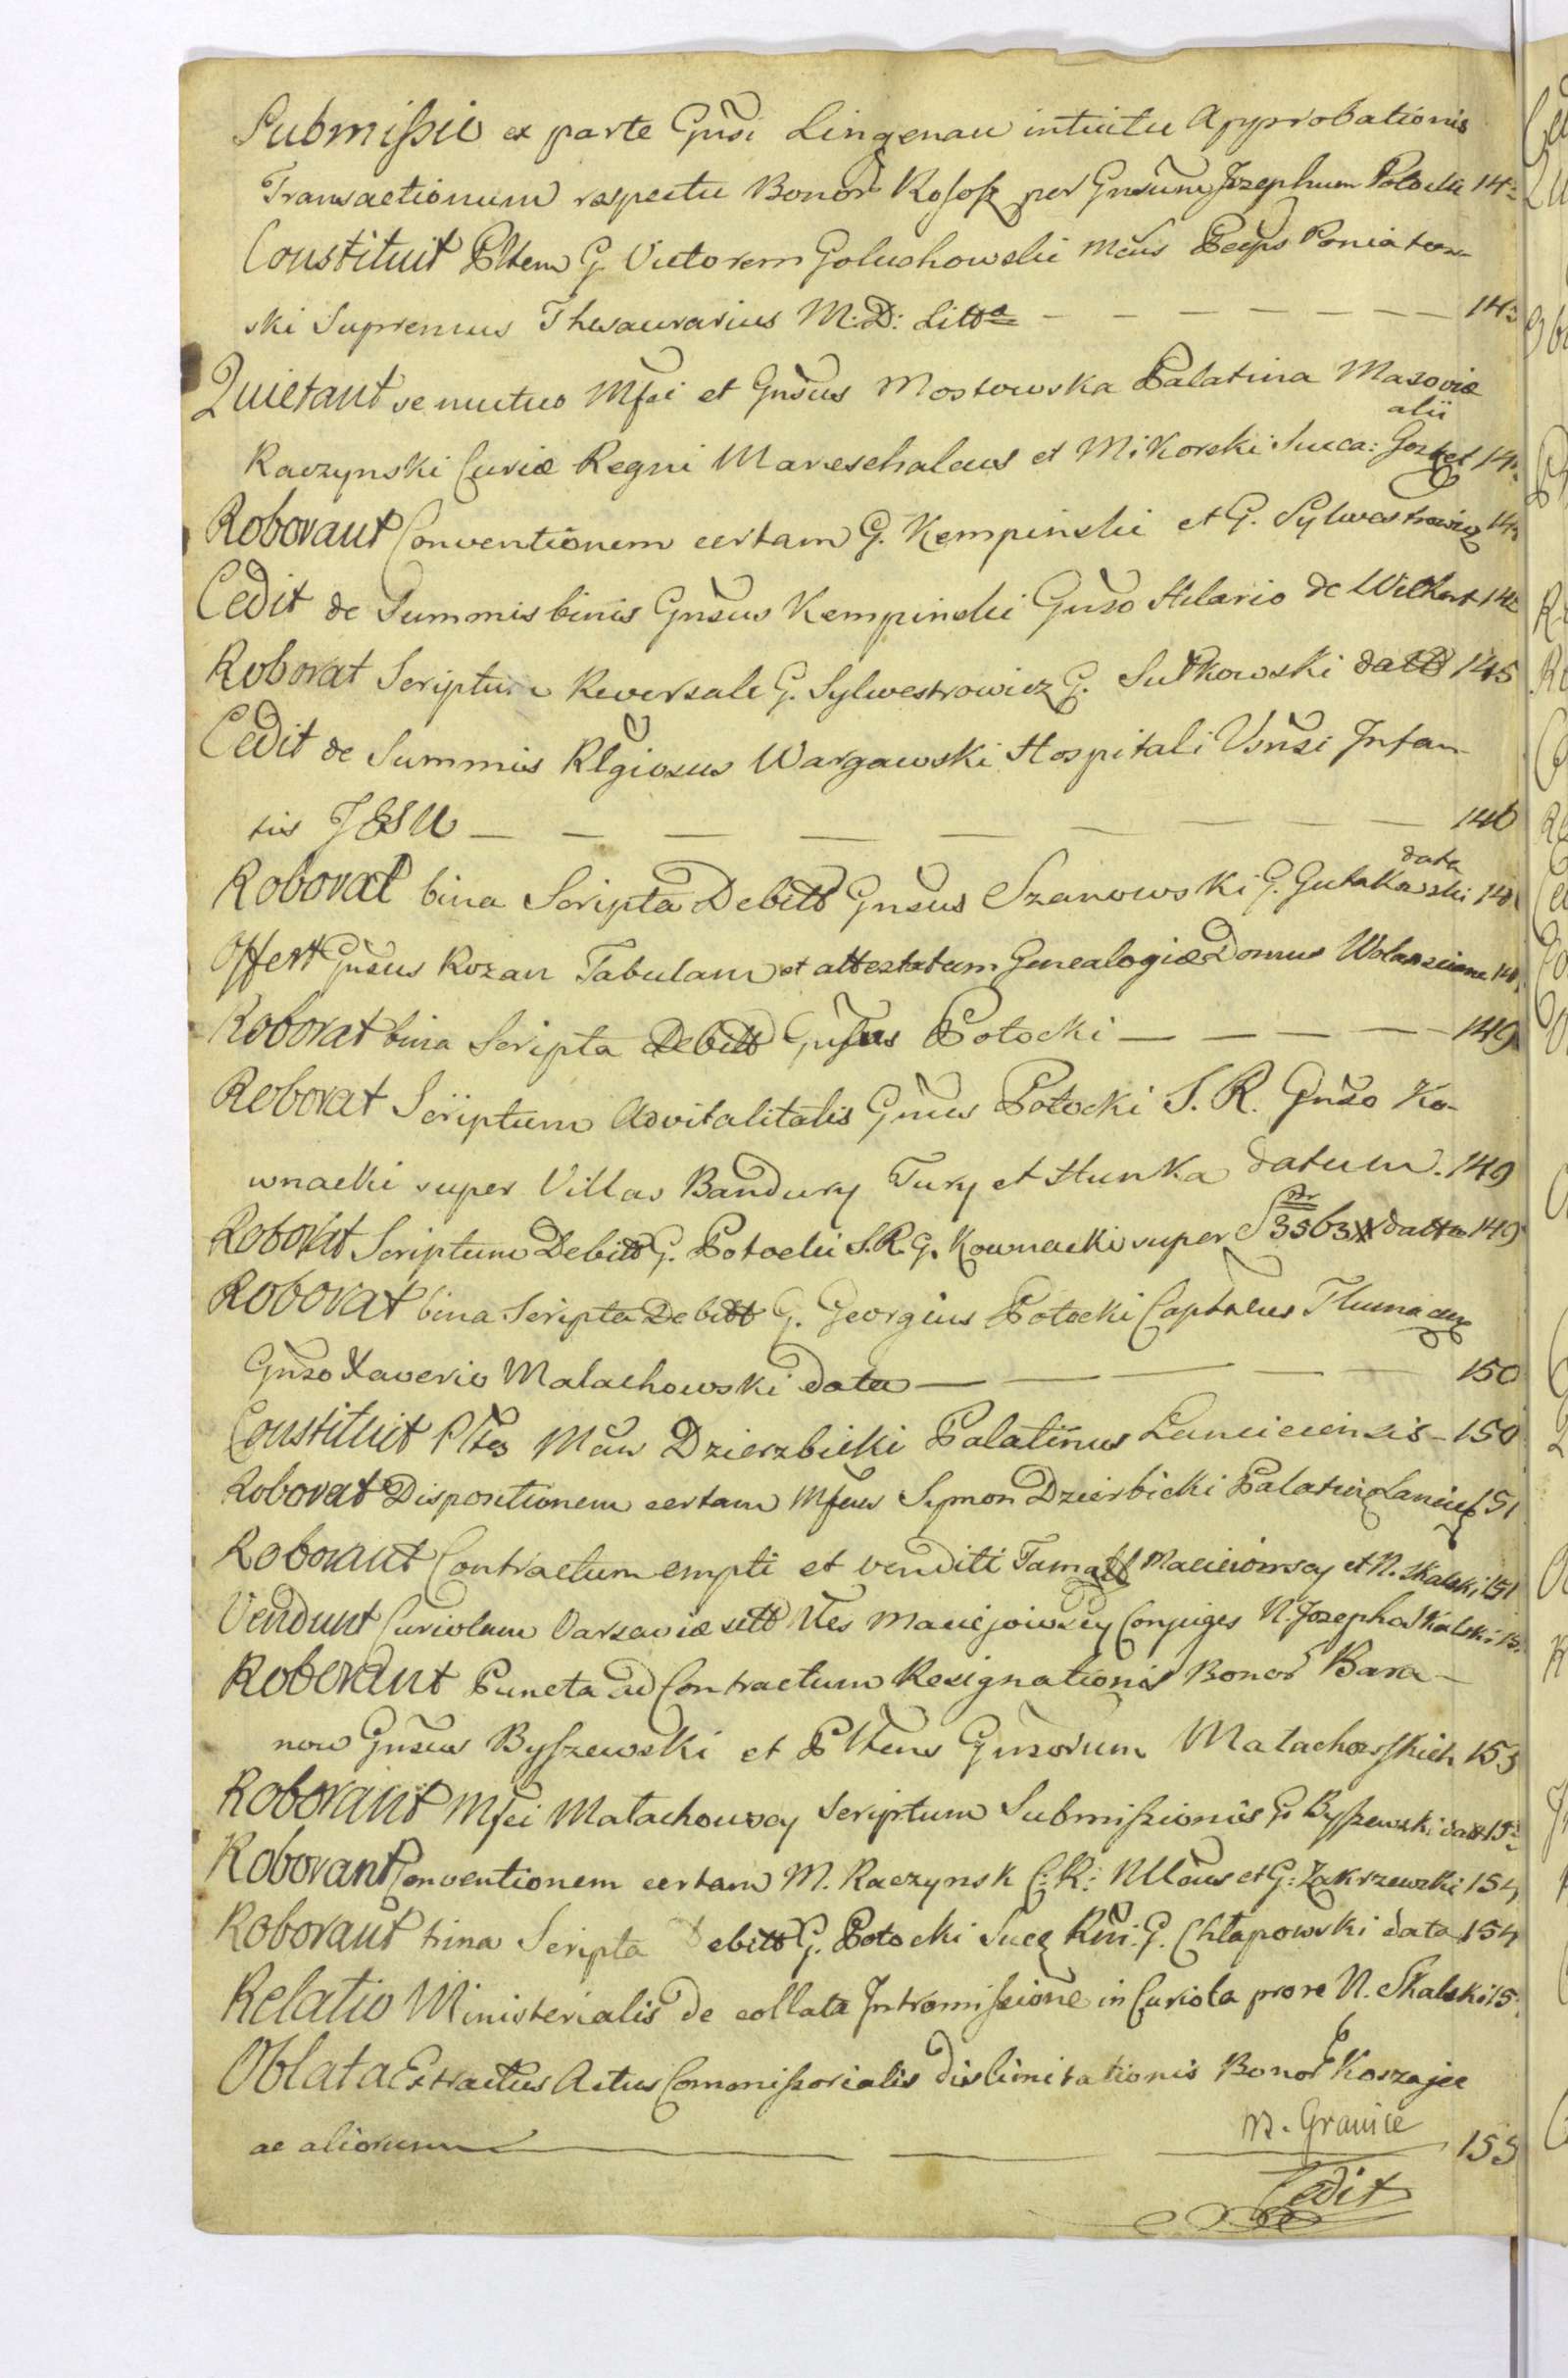 Submissio ex parte Gnsi Lingenau intuitu Approbationis
Transactionum respectu Bonor Rososz per Gnsum Jzephum Potocki 14
Constituit Pltem G. Victorem Goluchowski Mcus Pceps Poniatow-
ski Supremus Thesaurarius M: D: Litta 143
Quietant se mutuo Mfci et Gnsus Mostowska Palatina Masoviæ
Raczynski Curiæ Regni Mareschalcus et Mikorski Succa: Gost et alii 14
Roborant Conventionem certam G. Kempinski et G. Sylwestrowicz 14
Cedit de Summis binis Gnsus Kempinski Gnso Hilario de Wilkost 14
Roborat Scriptum Reversale G. Sylwestrowicz G. Sulkowski datt 145
Cedit de Summis Rlgiosus Wargawski Hospitali Vrsi Infan-
tis JESU 146
Roborat bina Scripta Debitt Gnsus Szanowski G. Gutakowski data 14
Offert Gnsus Kozan Tabulam et attestatum Genealogiæ Domus Wolanscianæ 14
Roborat bina Scripta Debitt Gnsus Potocki 149
Roborat Scriptum Advitalitatis Gnus Potocki S. R. Gnso Ko-
wnacki super Villas Bandury Tury et Hunka datum. 149
Roborat Scriptum Debitt G. Potocki S. R. G. Kownacki super S 3563 # datta 149
Roborat bina Scripta Debitt G. Georgius Potocki Captalus Tlumacz
Gnso Xaverio Malachowski data 150
Constituit Pltes Mcus Dzierzbicki Palatinus Lanciciensis 150
Roborat Dispositionem certam Mfcus Symon Dzierbicki Palatin Lancic 151
Roborant Contractum empti et venditi Famatt Macieiowscy et N. Skalski 151
Vendunt Curiolam Varsaviæ sitt Ttes Maciejoiwscy Conjuges N. Josepho Skalski 15
Roborant Puncta ad Contractum Resignationis Bonor Bara-
now Gnsus Byszewski et Pltens Gnsorum Malachowskich 153
Roborant Mfci Małachowscy Scriptum Submissionis G. Byszewski datt 15
Roborant Conventionem certam M. Raczynsk C: R: Mlcus et G: Zakrzewski 154
Roborant trina Scripta Debitt G. Potocki Succ Rni: G. Chłapowski data 154
Relatio Ministerialis de collata Intromissione in Curiola pro re N. Skalski 15
Oblata Extractus Actus Commissorialis dislimitationis Bonor Koszajec
ac aliorum M. Granice 155
Cedit